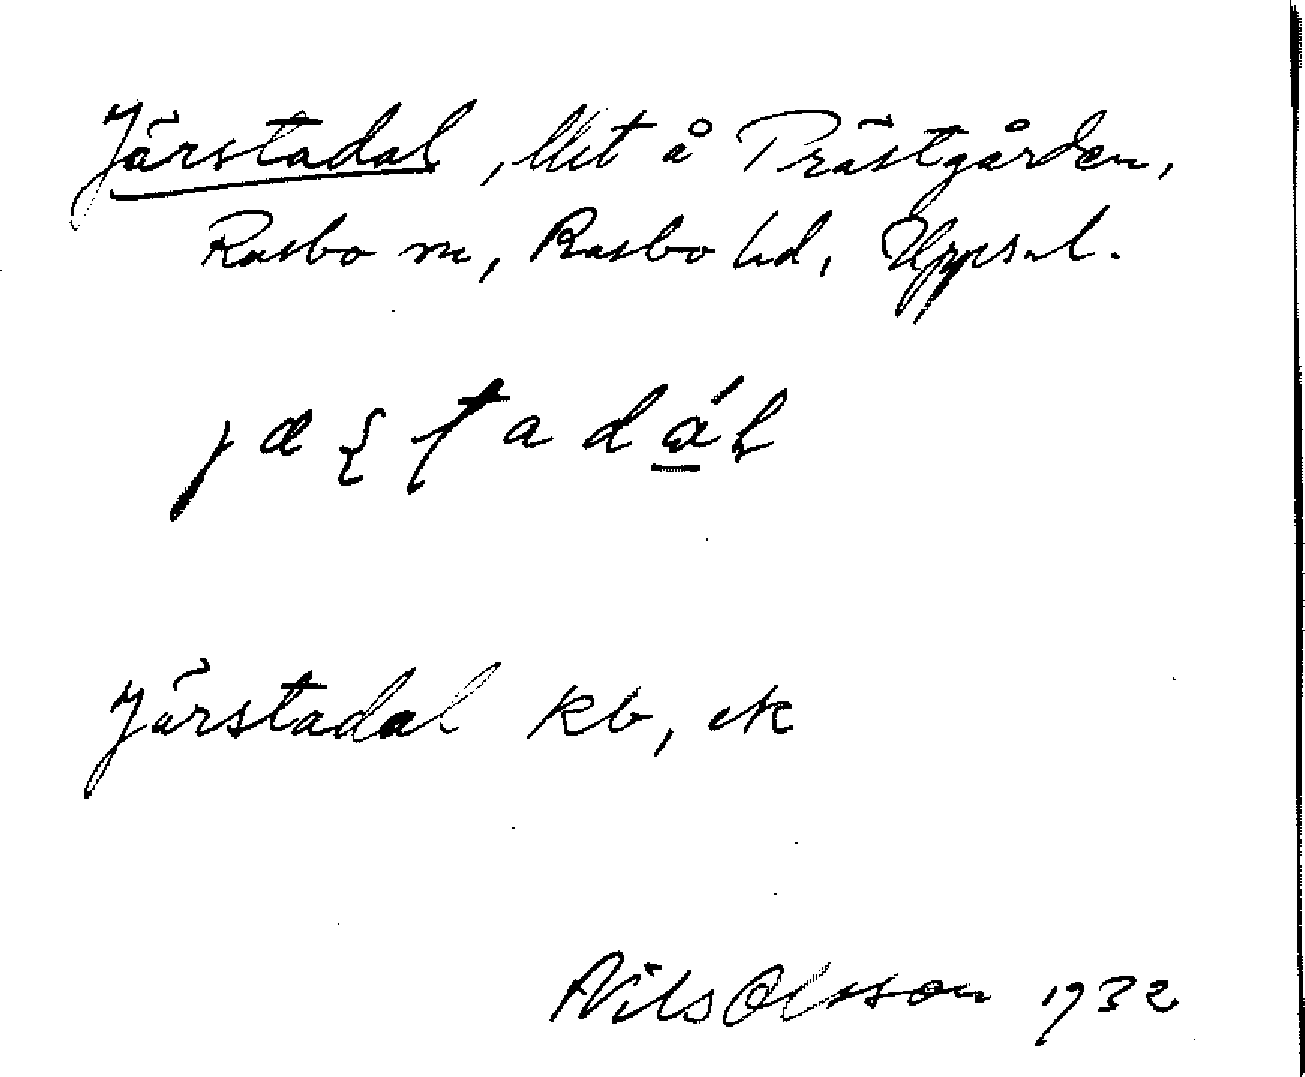 Järstadal, llt å Prästgården,
Rasbo sn, Rasbo hd, Uppsal.
Järstadal kb, ek
Nils Olsson 1932